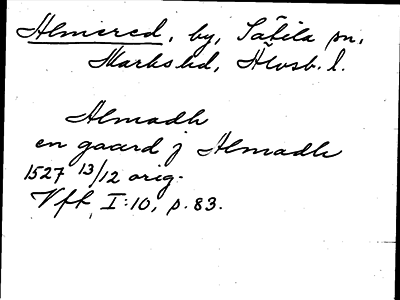 Almered, by, Sätila sn,
Marks hd, Älvsb. l.
Almadh
en gaard j Almadh
1527 13/12 orig.
Vff, I:10, p. 83.